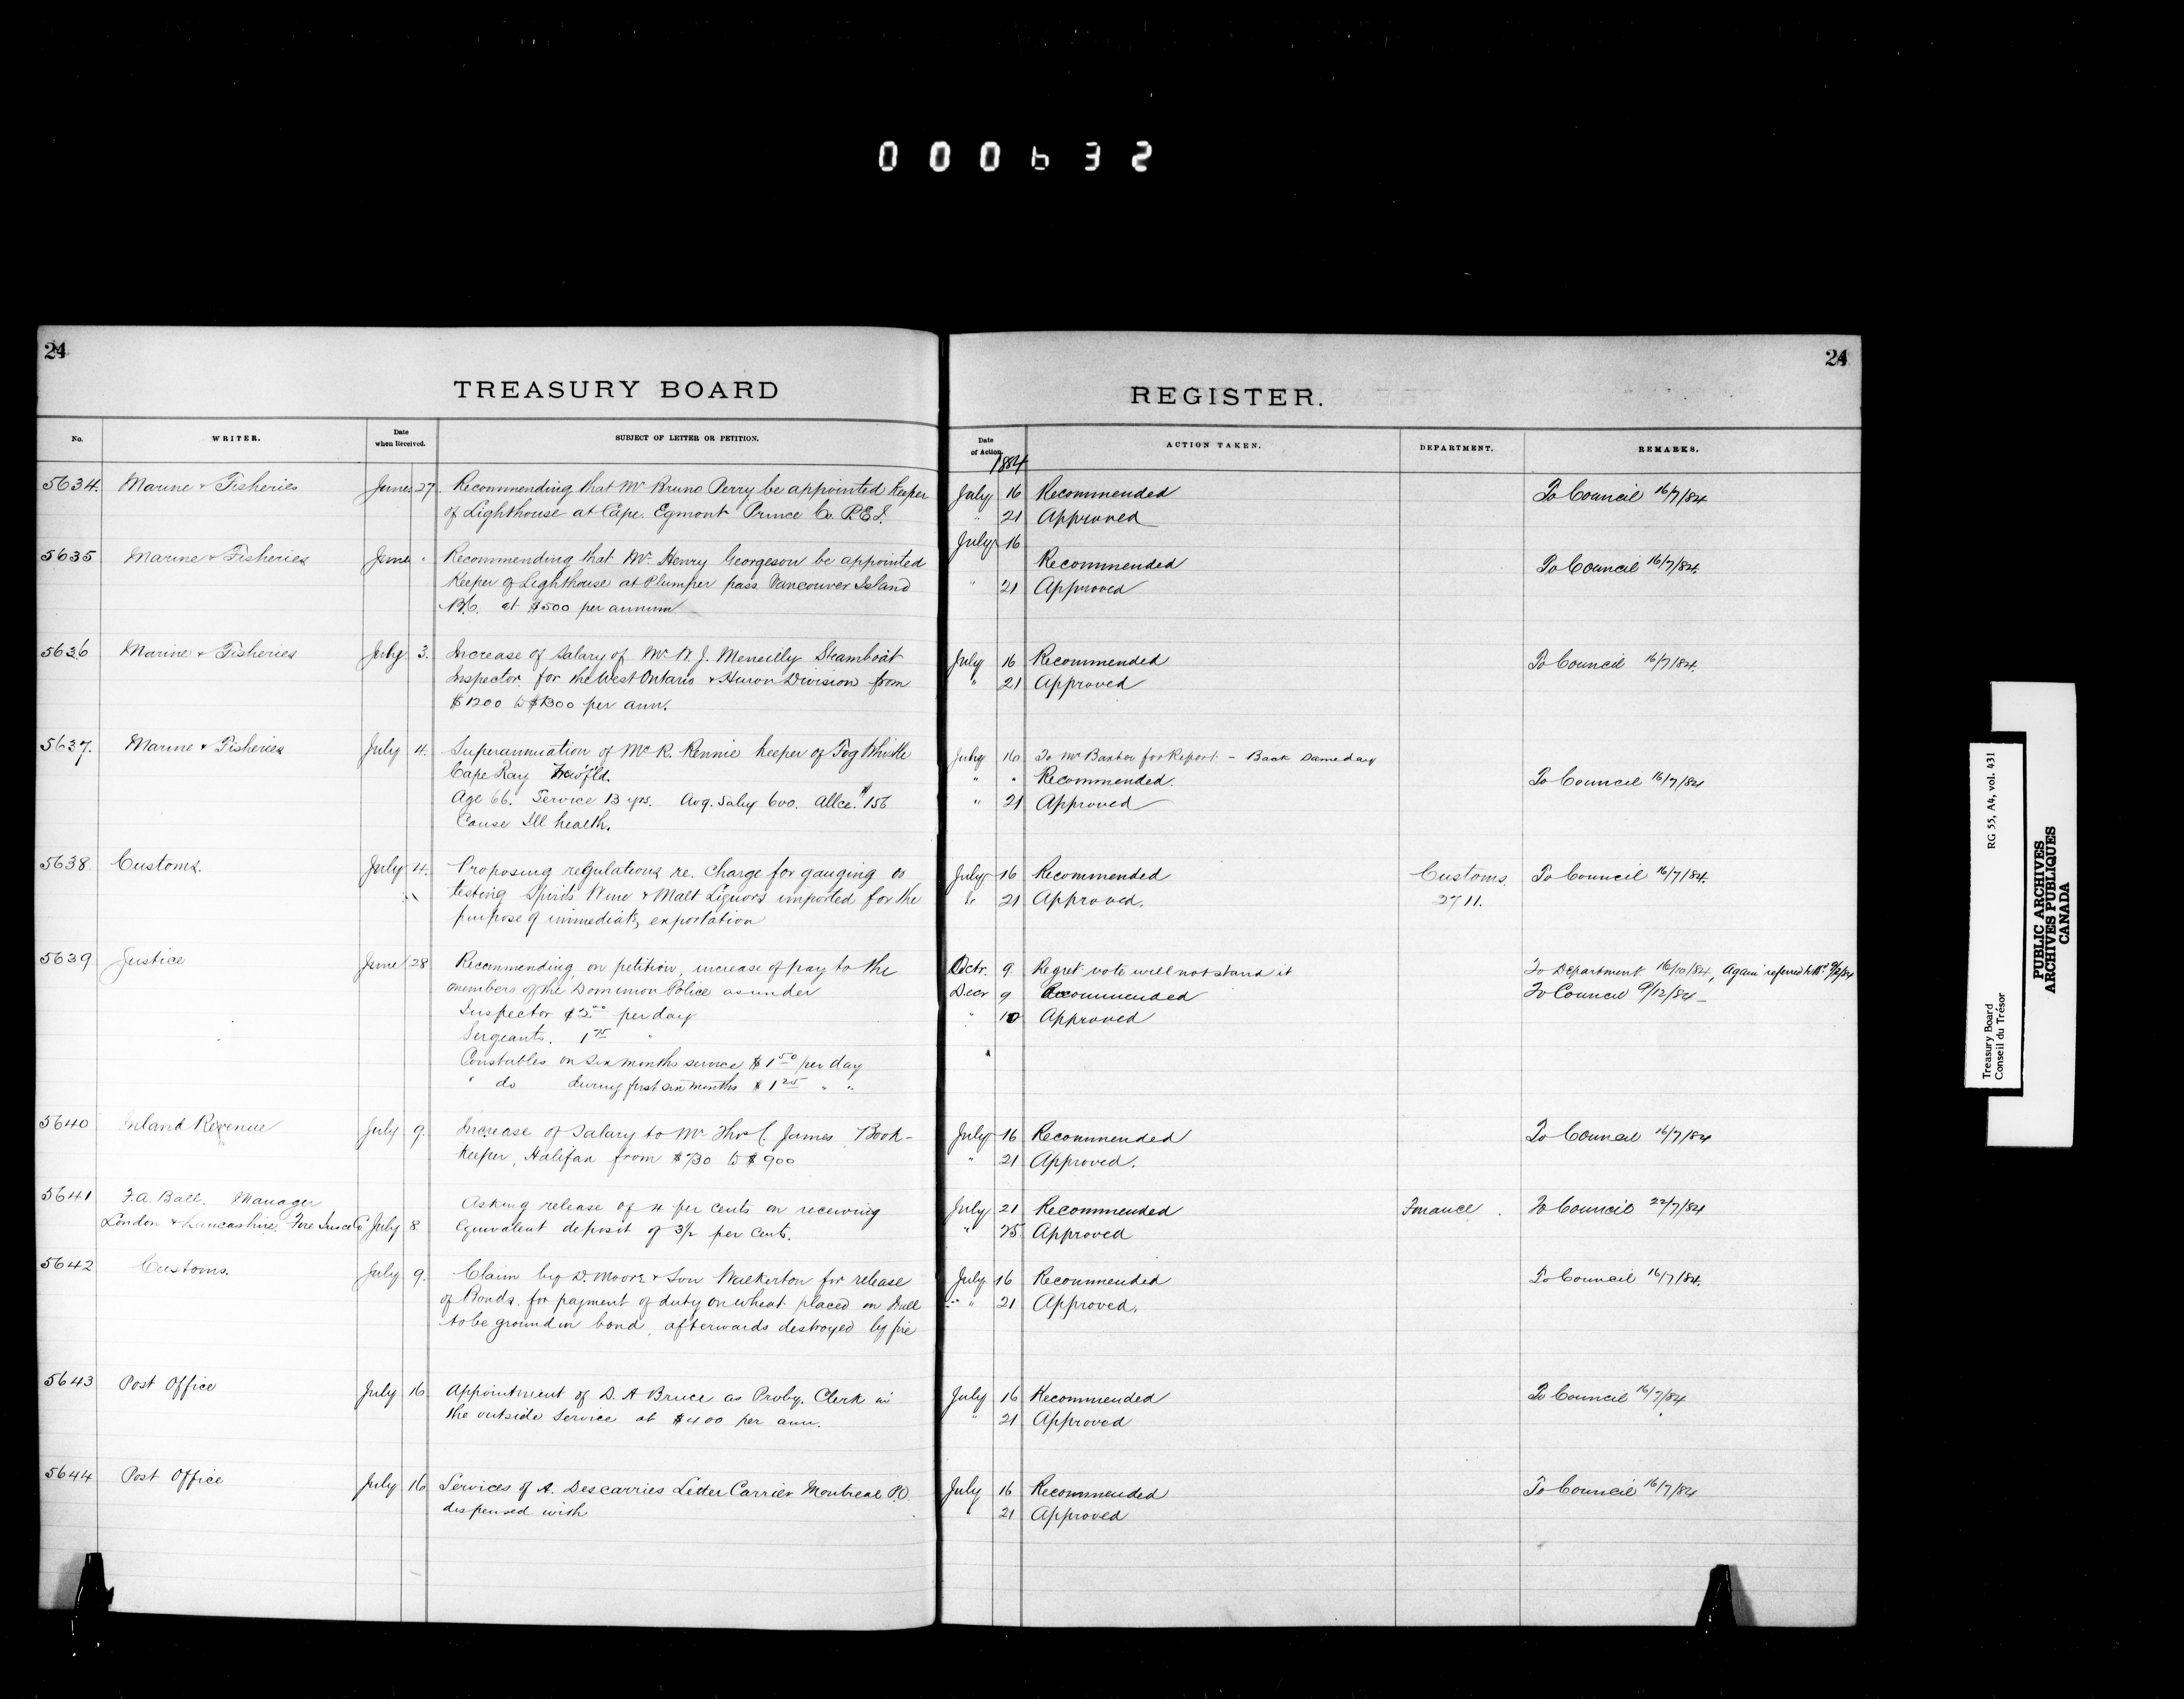 000632
24
TREASURY BOARD
No.
WRITER.
Date when Received.
SUBJECT OF LETTER OR PETITION.
5634. Marine & Fisheries June 27. Recommending that Mr Bruno Perry be appointed keeper
of Lighthouse at Cape Egmont Prince Co. P.E.I.
5635 Marine & Fisheries June " Recommending that Mr. Henry Georgeson be appointed
Keeper of Lighthouse at Plumper pass Vancouver Island
B.C. at $500 per annum
5636 Marine & Fisheries July 3. Increase of salary of Mr W. J. Meneilly Steamboat
Inspector for the West Ontario & Huron Division from
$1200 to $1300 per ann.
5637. Marine & Fisheries July 4. Superannuation of Mr R. Rennie keeper of Fog Whistle
Cape Ray Newf'ld.
Age 66. Service 13 yrs. Avg. Saly 600. Allce. $156
Cause Ill health.
5638 Customs. July 4. Proposing regulations re. charge for gauging or
testing Spirits Wine & Malt Liquors imported for the
purpose of immediate exportation
5639 Justice June 28 Recommending, on petition, increase of pay to the
members of the Dominion Police as under
Inspector $3.00 per day
Sergeants. 1 75 "
Constables on six months service $1 50 per day
" do during first six months $1 25 " "
5640 Inland Revenue July 9. Increase of Salary to Mr Thos C. James Book-
keeper, Halifax from $730 to $900
5641 F.A. Ball. Manager
London & Lancashire Fire Insce Co July 8 Asking release of 4 per cents on receiving
Equivalent deposit of 3½ per cents.
5642 Customs. July 9. Claim by D. Moore & Son Walkerton for release
of Bonds for payment of duty on wheat placed in Mill
to be ground in bond, afterwards destroyed by fire
5643 Post Office July 16 Appointment of D. A Bruce as Proby. Clerk in
the outside service at $400 per ann.
5644 Post Office July 16 Services of A. Descarries Letter Carrier Montreal P.O.
dispensed with
24
REGISTER.
Date of Action.
ACTION TAKEN.
DEPARTMENT.
REMARKS.
1884
July 16 Recommended To Council 16/7/84
" 21 Approved
July 16
Recommended To Council 16/7/84.
" 21 Approved
July 16 Recommended To Council 16/7/84.
" 21 Approved
July 16 To Mr Baxter for Report. - Back same day
" " Recommended. To Council 16/7/84
" 21 Approved
July 16 Recommended Customs. To Council 16/7/84.
" 21 Approved. 2711.
Octr. 9 Regret vote will not stand it To Department 16/10/84, Again referred to
Decr 9 Recommended To Council 9/12/84
" 10 Approved
July 16 Recommended To Council 16/7/84
" 21 Approved.
July 21 Recommended Finance. To Council 22/7/84
" 25 Approved
July 16 Recommended To Council 16/7/84.
" 21 Approved.
July 16 Recommended To Council 16/7/84
" 21 Approved
July 16 Recommended To Council 16/7/84
" 21 Approved
Treasury Board RG 55, A4, vol. 431
Conseil du Trésor
PUBLIC ARCHIVES
ARCHIVES PUBLIQUES
CANADA